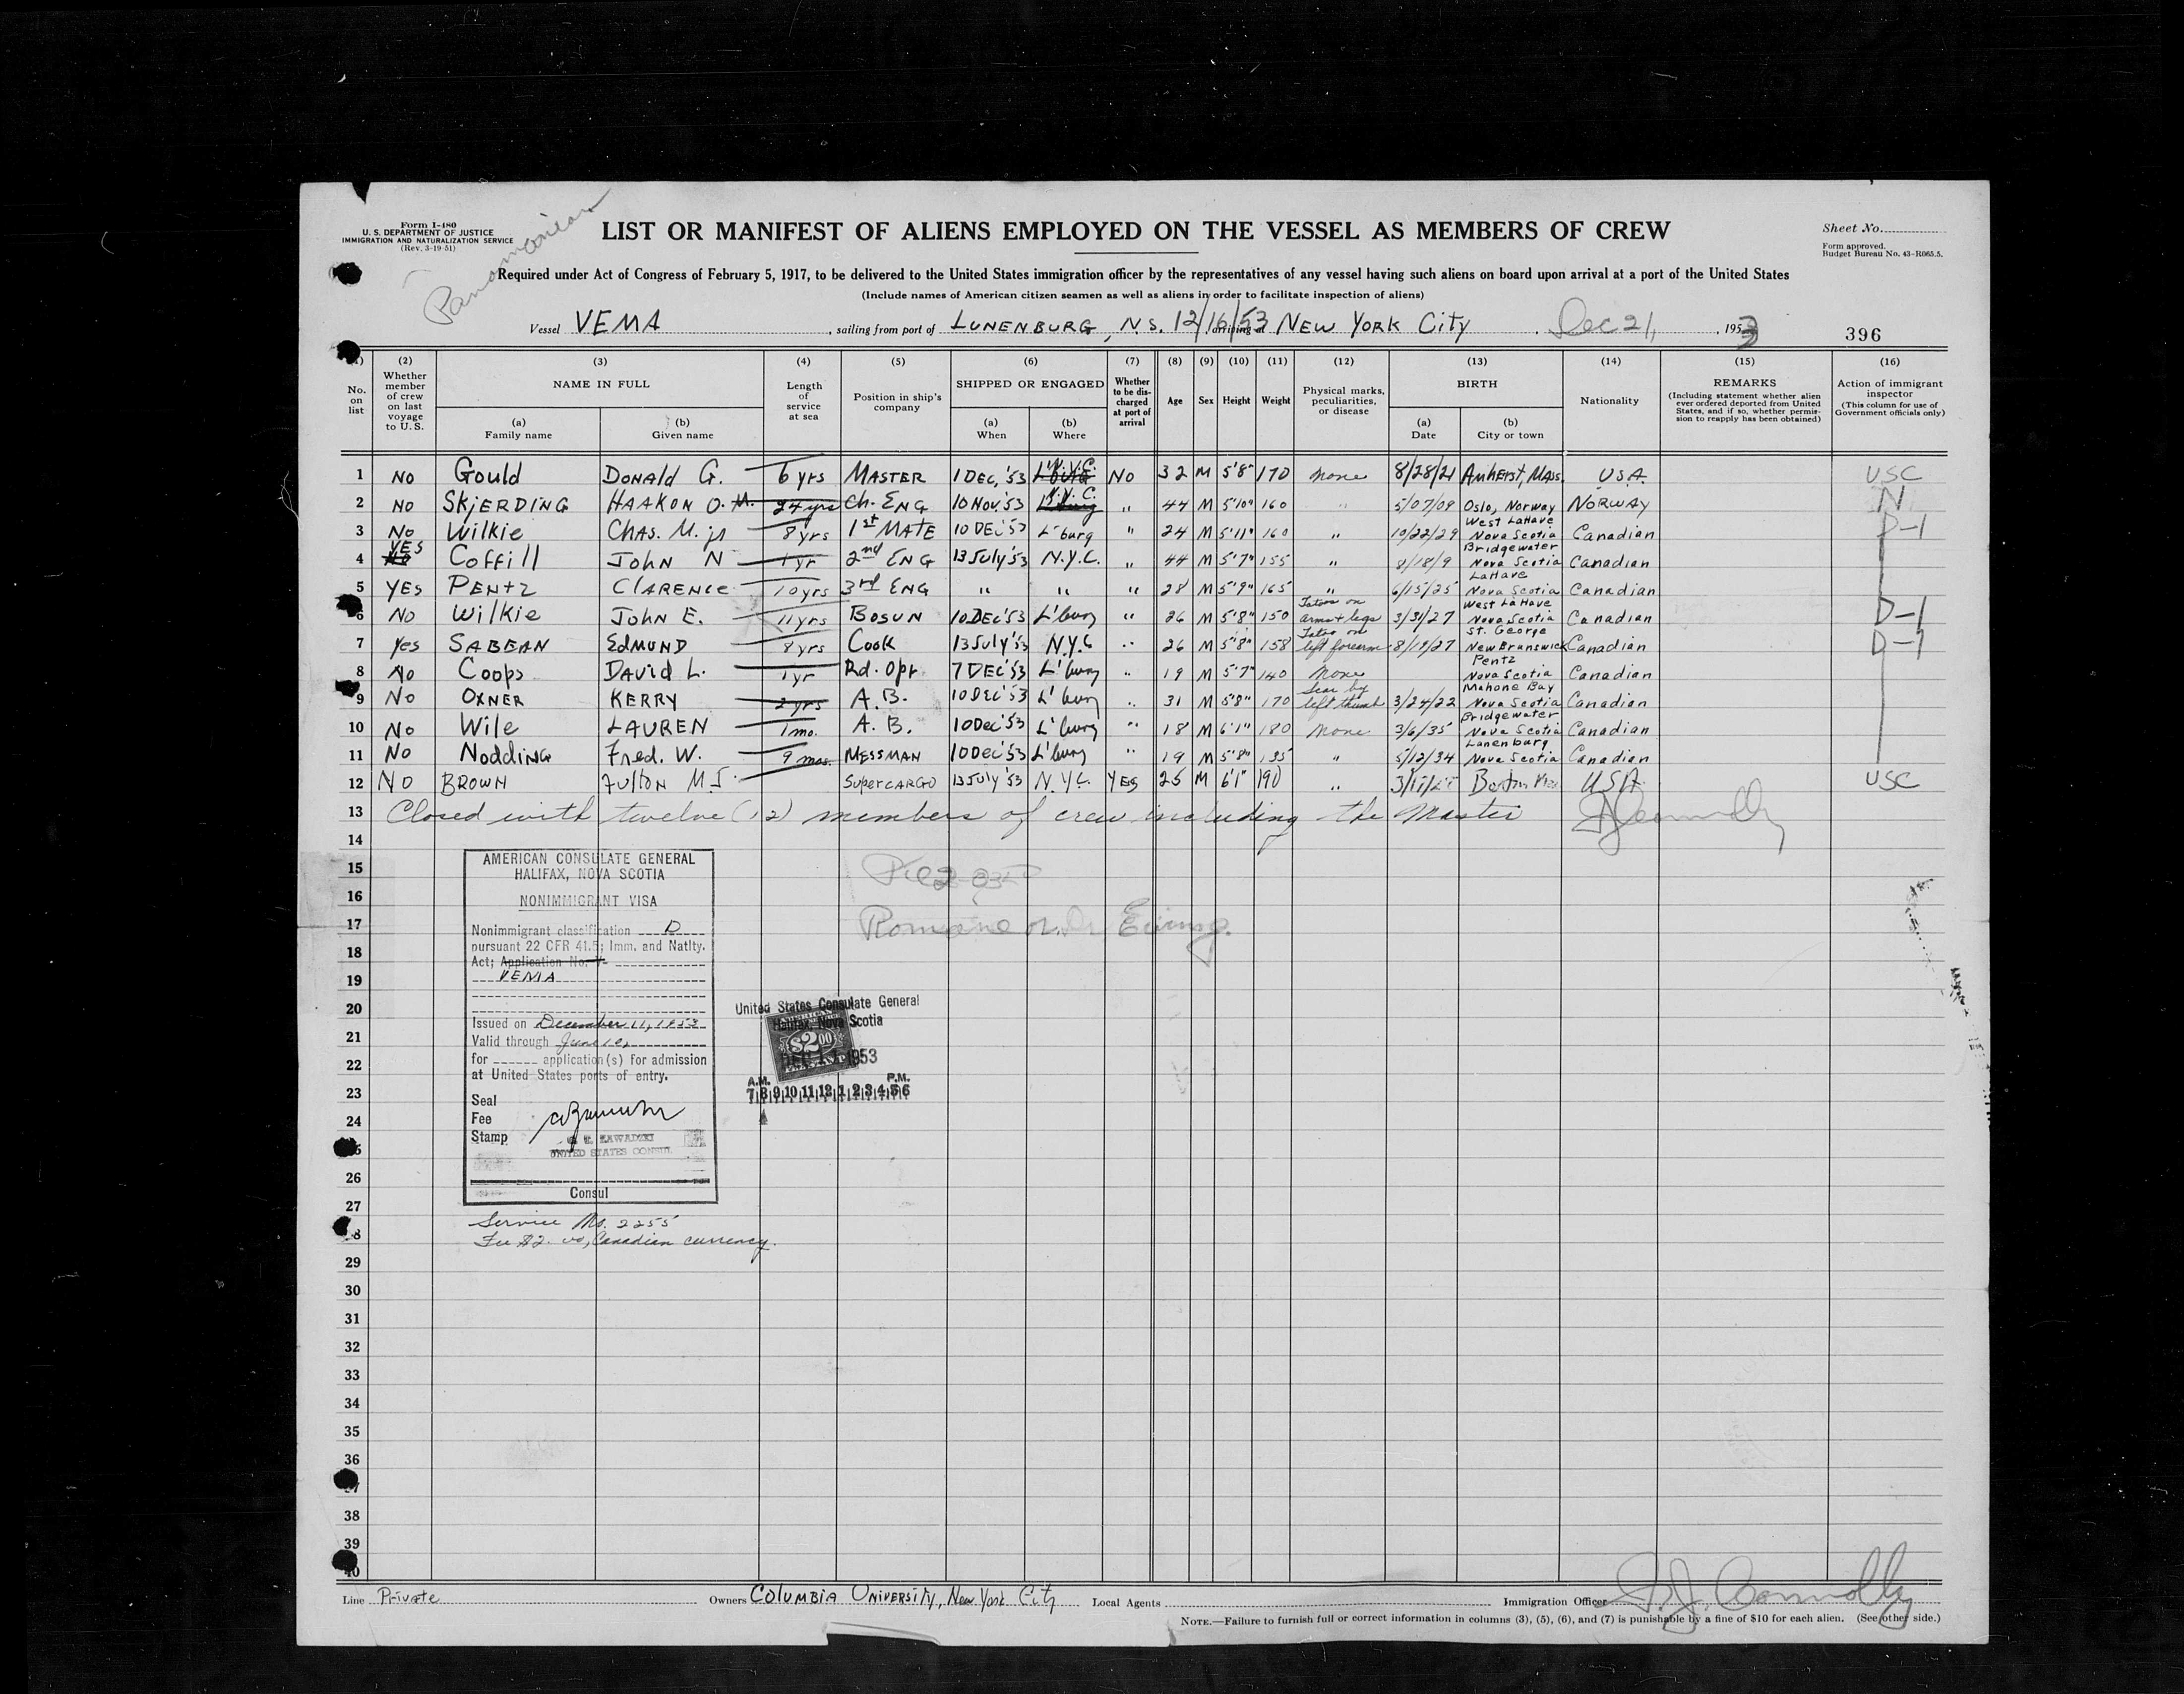 Form I-480
U. S. DEPARTMENT OF JUSTICE
IMMIGRATION AND NATURALIZATION SERVICE
(Rev. 3-19-51)
Panamanian
LIST OR MANIFEST OF ALIENS EMPLOYED ON THE VESSEL AS MEMBERS OF CREW
Sheet No.
Form approved.
Budget Bureau No. 43-R065.5.
Required under Act of Congress of February 5, 1917, to be delivered to the United States immigration officer by the representatives of any vessel having such aliens on board upon arrival at a port of the United States
(Include names of American citizen seamen as well as aliens in order to facilitate inspection of aliens)
Vessel VEMA, sailing from port of LUNENBURG, N.S. 12/16/53 arriving at NEW YORK City Dec 21, 1953
396
(1) No. on list
(2) Whether member of crew on last voyage to U. S.
(3) NAME IN FULL (a) Family name (b) Given name
(4) Length of service at sea
(5) Position in ship's company
(6) SHIPPED OR ENGAGED (a) When (b) Where
(7) Whether to be discharged at port of arrival
(8) Age
(9) Sex
(10) Height
(11) Weight
(12) Physical marks, peculiarities, or disease
(13) BIRTH (a) Date (b) City or town
(14) Nationality
(15) REMARKS (Including statement whether alien ever ordered deported from United States, and if so, whether permission to reapply has been obtained)
(16) Action of immigrant inspector (This column for use of Government officials only)
1 NO Gould DONAld G. 6 yrs MASTER 1 DEC, '53 N.Y.C. NO 32 M 5'8" 170 none 8/28/21 AmhERst, MASS. U.S.A. USC
2 NO SKjERDING HAAKON O. M. 24 yrs Ch. ENG 10 NOV '53 N.Y.C. " 44 M 5'10" 160 " 5/07/09 Oslo, Norway NORWAY N
3 No Wilkie CHAS. M. jr 8 yrs 1st MATE 10 DEC '53 L'burg " 24 M 5'11" 160 " 10/22/29 West LaHave Nova Scotia Canadian D-1
4 YES Coffill John N 1 yr 2nd ENG 13 July '53 N.Y.C. " 44 M 5'7" 155 " 8/18/9 Bridgewater Nova Scotia Canadian
5 YES PENTZ CLARENCE 10 yrs 3rd ENG " " " 28 M 5'9" 165 " 6/15/25 LaHave Nova Scotia Canadian
6 NO Wilkie John E. 11 yrs BOSUN 10 DEC '53 L'burg " 26 M 5'8" 150 Tatoo on arms + legs 3/31/27 West LaHave Nova Scotia Canadian D-1
7 Yes SABEAN EdMUND 8 yrs Cook 13 July '53 N.Y.C " 26 M 5'8" 158 Tatoo on left forearm 8/19/27 St. George New Brunswick Canadian D-1
8 No Coops DAVID L. 1 yr Rd. Opr 7 DEC '53 L'burg " 19 M 5'7" 140 None Pentz Nova Scotia Canadian
9 NO OXNER KERRY 2 yrs A.B. 10 DEC '53 L'burg " 31 M 5'8" 170 Scar by left thumb 3/24/22 Mahone Bay Nova Scotia Canadian
10 No Wile LAUREN 1 mo. A.B. 10 Dec '53 L'burg " 18 M 6'1" 180 None 3/6/35 Bridgewater Nova Scotia Canadian
11 NO Nodding Fred. W. 9 mos. MESSMAN 10 Dec '53 L'burg " 19 M 5'8" 135 " 5/12/34 Lunenburg Nova Scotia Canadian
12 NO BROWN Fulton M J. SuperCARGO 13 July '53 N.Y.C. YES 25 M 6'1" 190 " U.S.A. USC
13 Closed with twelve (12) members of crew including the Master
14
15
16
17
18
19
20
21
22
23
24
26
27
29
30
31
32
33
34
35
36
38
39
40
AMERICAN CONSULATE GENERAL
HALIFAX, NOVA SCOTIA
NONIMMIGRANT VISA
Nonimmigrant classification D
pursuant 22 CFR 41.5; Imm. and Natlty.
Act; Application No. V-
VEMA
Issued on December 11, 1953
Valid through June 10,
for application(s) for admission
at United States ports of entry.
Seal
Fee
Stamp
ZAWADZKI
UNITED STATES CONSUL
Consul
United States Consulate General
Halifax, Nova Scotia
$2.00
DEC 11 1953
A.M. P.M.
7 8 9 10 11 12 1 2 3 4 5 6
Service No. 2255
Fee $2.00, Canadian currency.
Line Private
Owners COLUMBIA UNIVERSITY, New York City
Local Agents
Immigration Officer
NOTE.—Failure to furnish full or correct information in columns (3), (5), (6), and (7) is punishable by a fine of $10 for each alien. (See other side.)